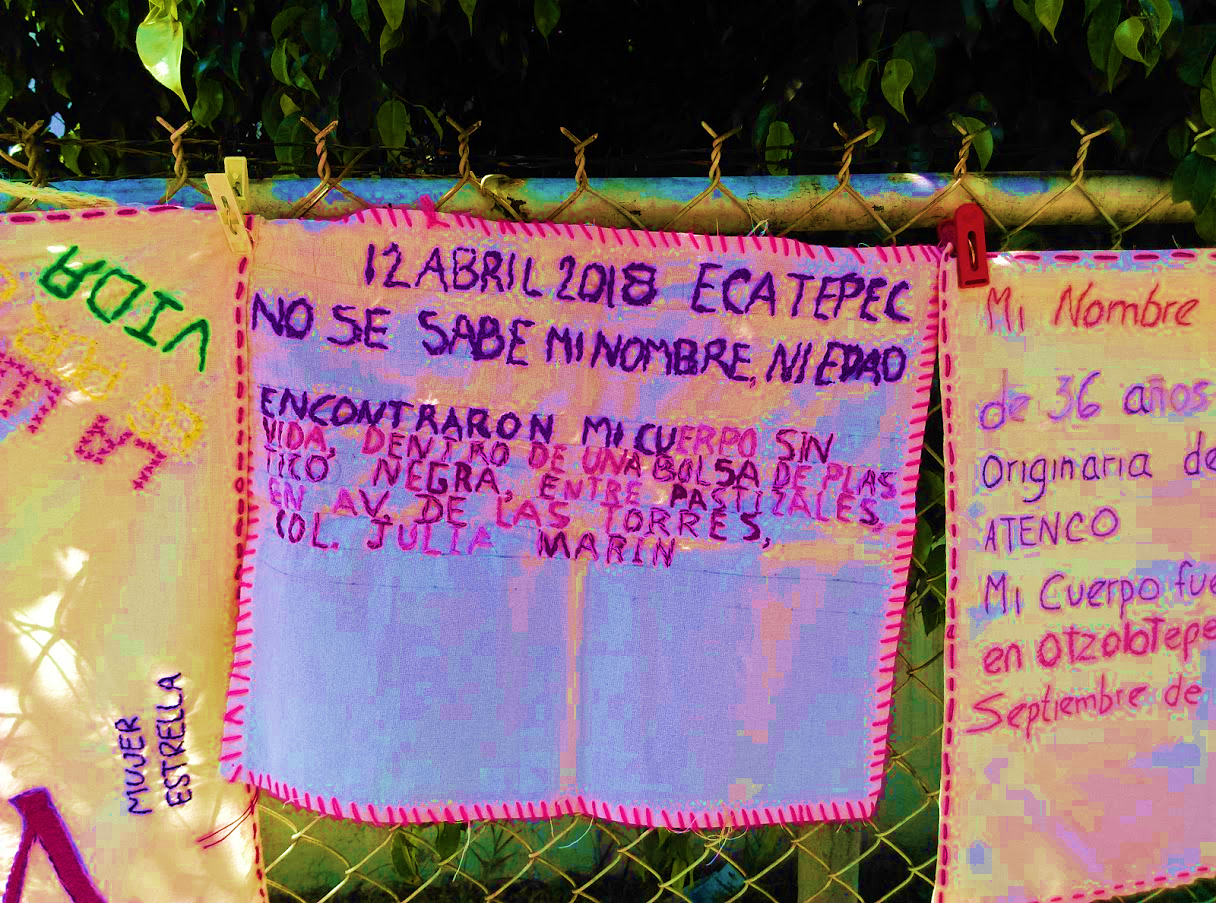 VIDA
LA
MUJER
ESTRELLA
12 ABRIL 2018 ECATEPEC
NO SE SABE MI NOMBRE, NI EDAD
ENCONTRARON MI CUERPO SIN
VIDA, DENTRO DE UNA BOLSA DE PLAS
TICO NEGRA, ENTRE PASTIZALES,
EN AV. DE LAS TORRES,
COL. JULIA MARIN
Mi Nombre
de 36 años
Originaria de
ATENCO
Mi Cuerpo fue
en Otzolotepe
Septiembre de